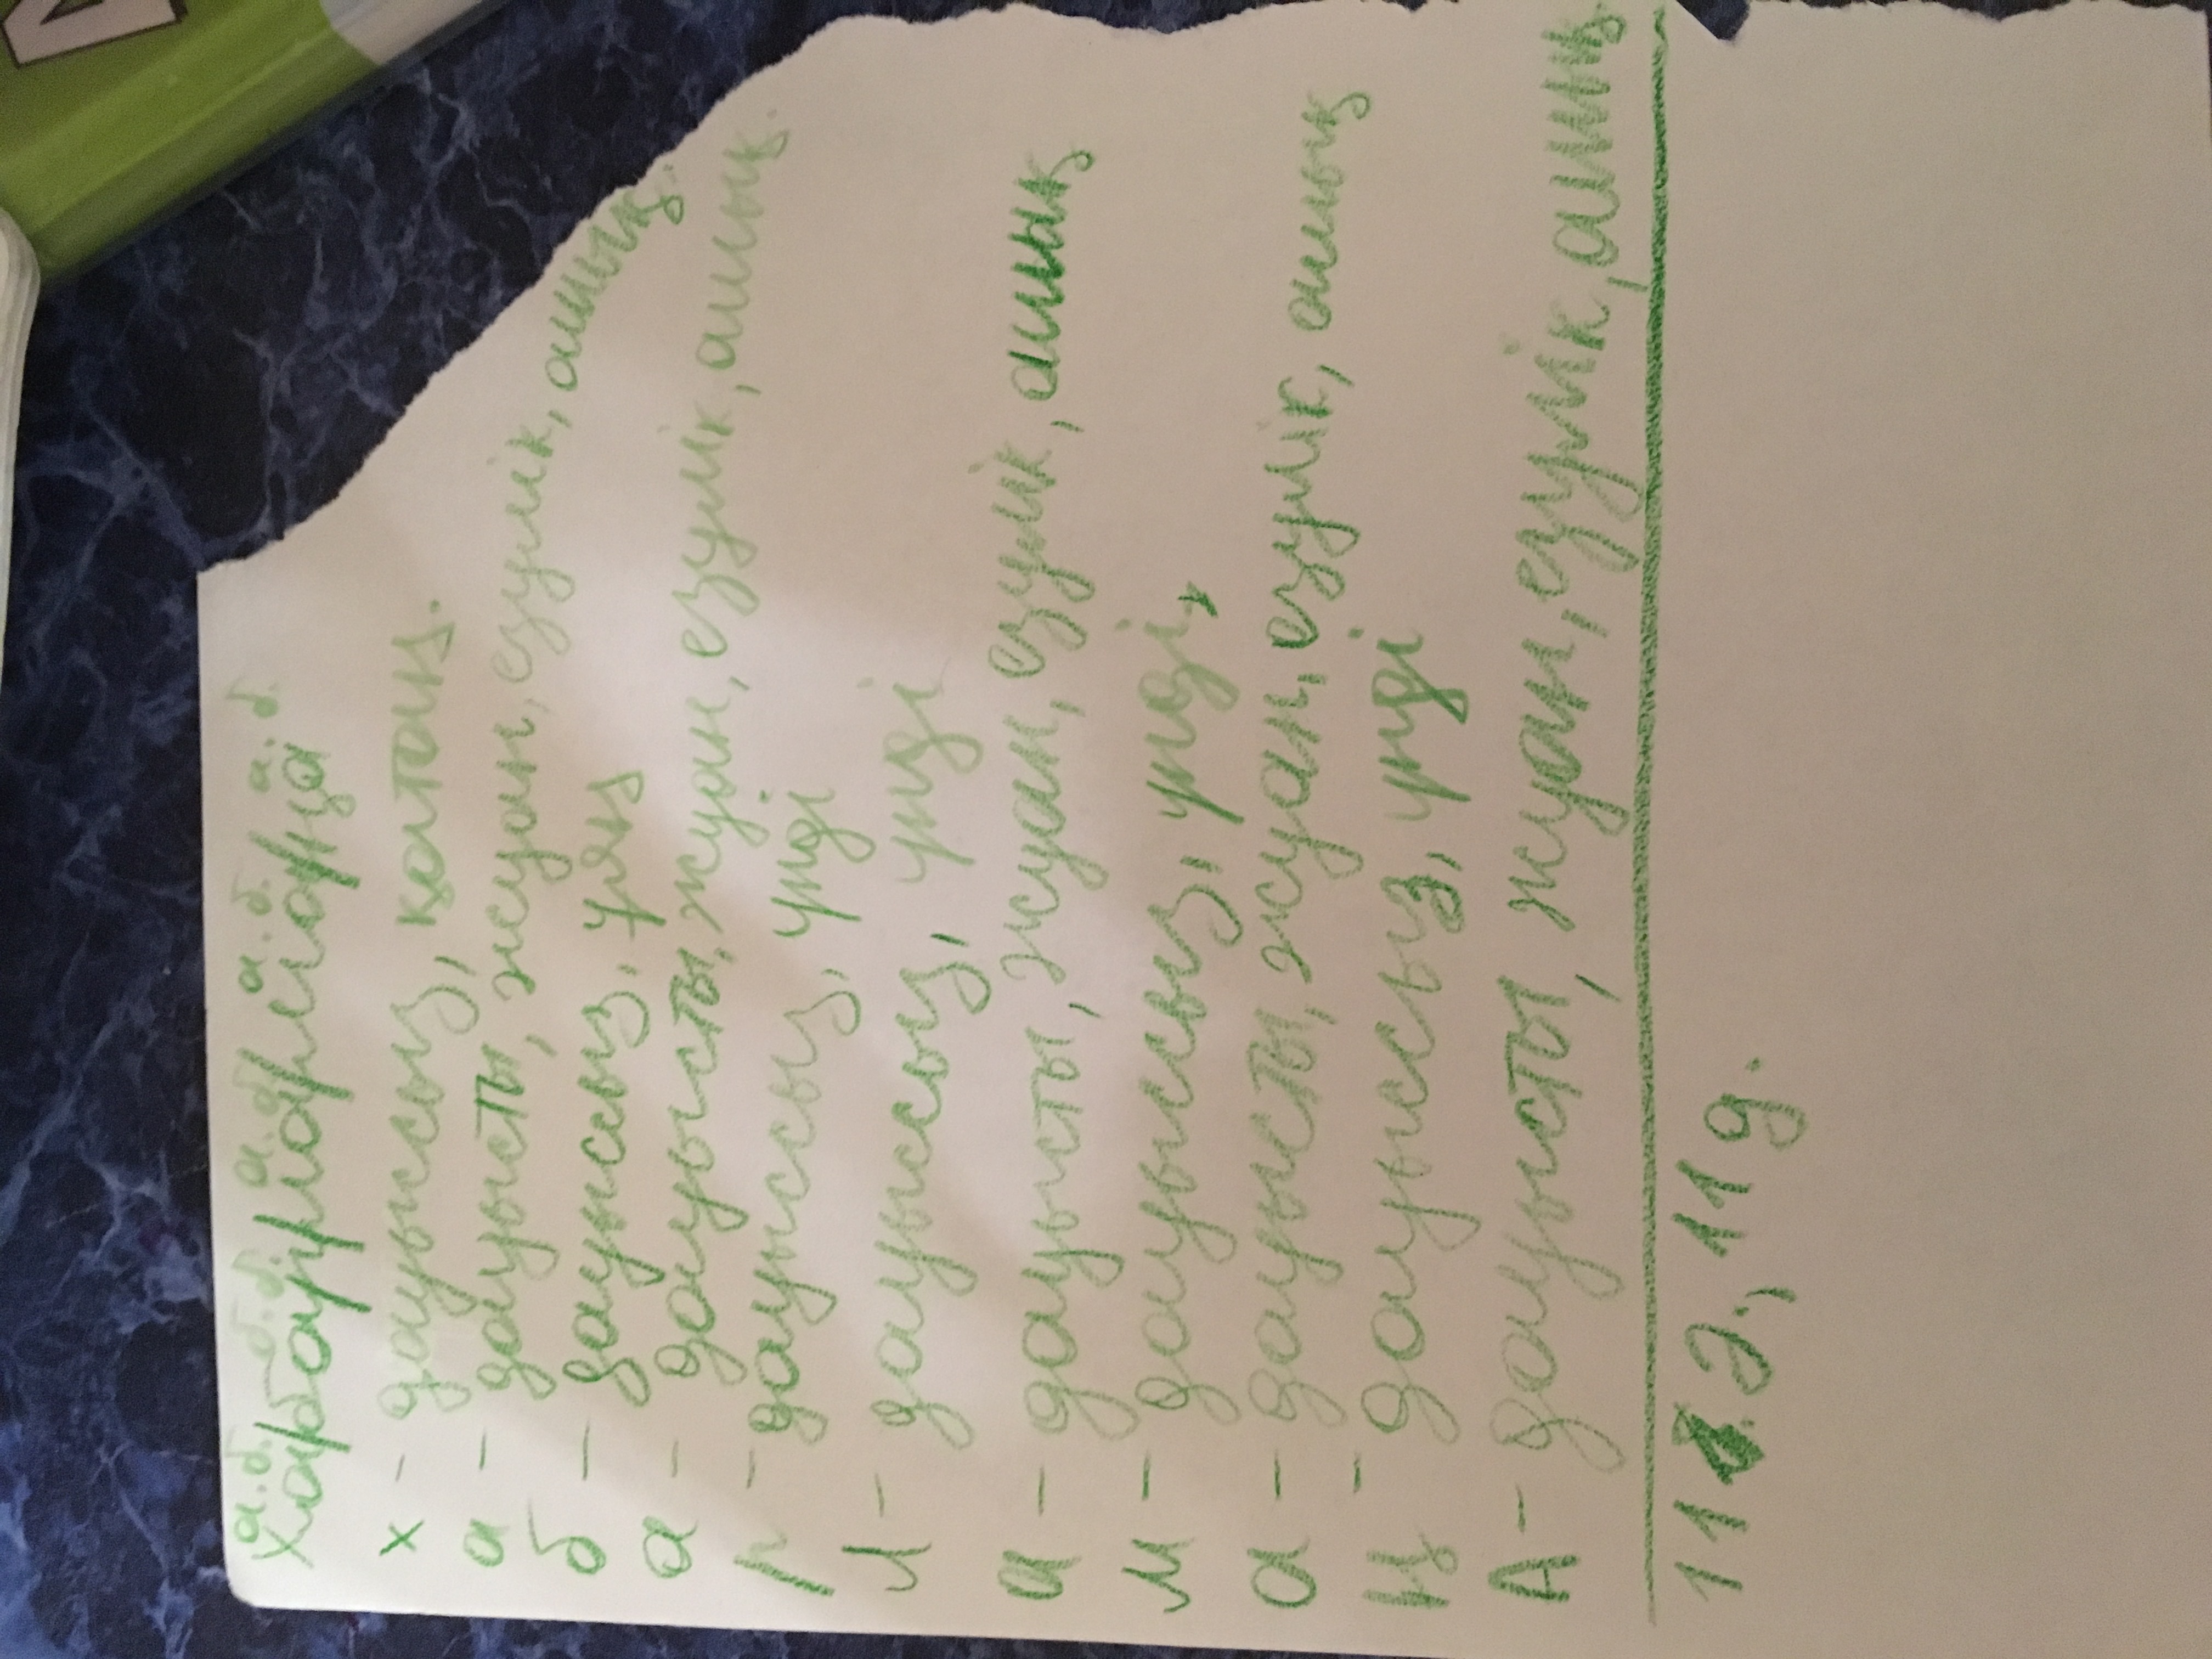 Хабарламаңа
х - дауыссыз, қатаң.
а - дауысты, жуан, езулік, ашық.
б - дауыссыз, ұяң
а - дауысты, жуан, езулік, ашық.
р - дауыссыз, үнді
л - дауыссыз, үнді
а - дауысты, жуан, езулік, ашық
м - дауыссыз, үнді,
а - дауысты, жуан, езулік, ашық
ң - дауыссыз, үнді
А - дауысты, жуан, езулік, ашық.
11 ә., 11 д.